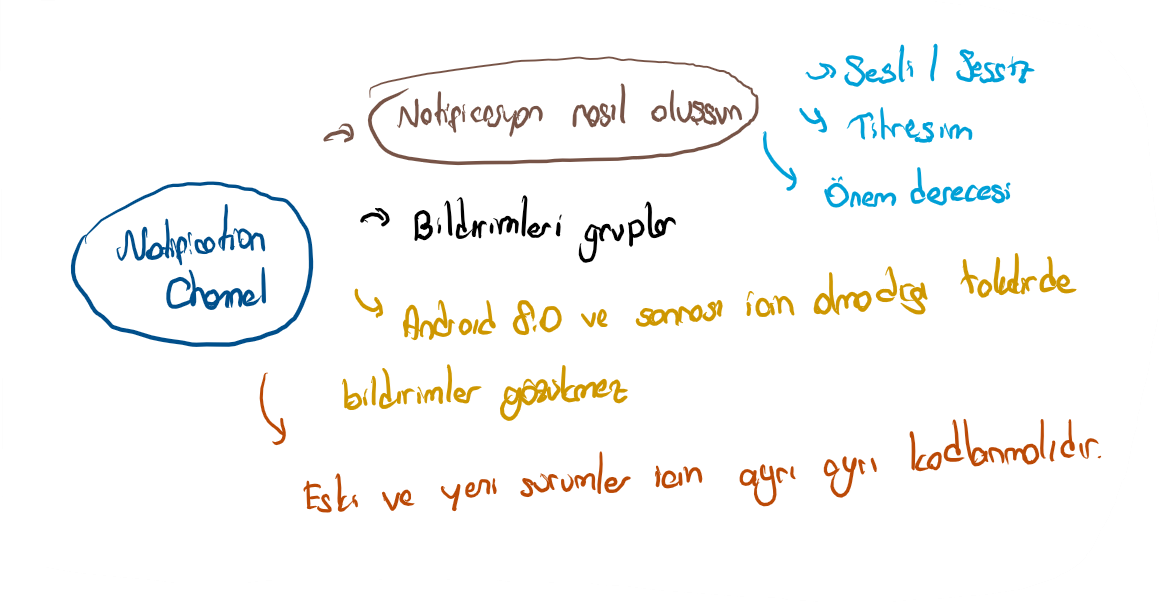 Notification
Channel
Notificasyon nasıl oluşsun
Sesli / Sessiz
Titresim
Önem derecesi
Bildirimleri gruplar
Android 8.0 ve sonrası için olmadığı takdirde
bildirimler gözükmez
Eski ve yeni sürümler için ayrı ayrı kodlanmalıdır.